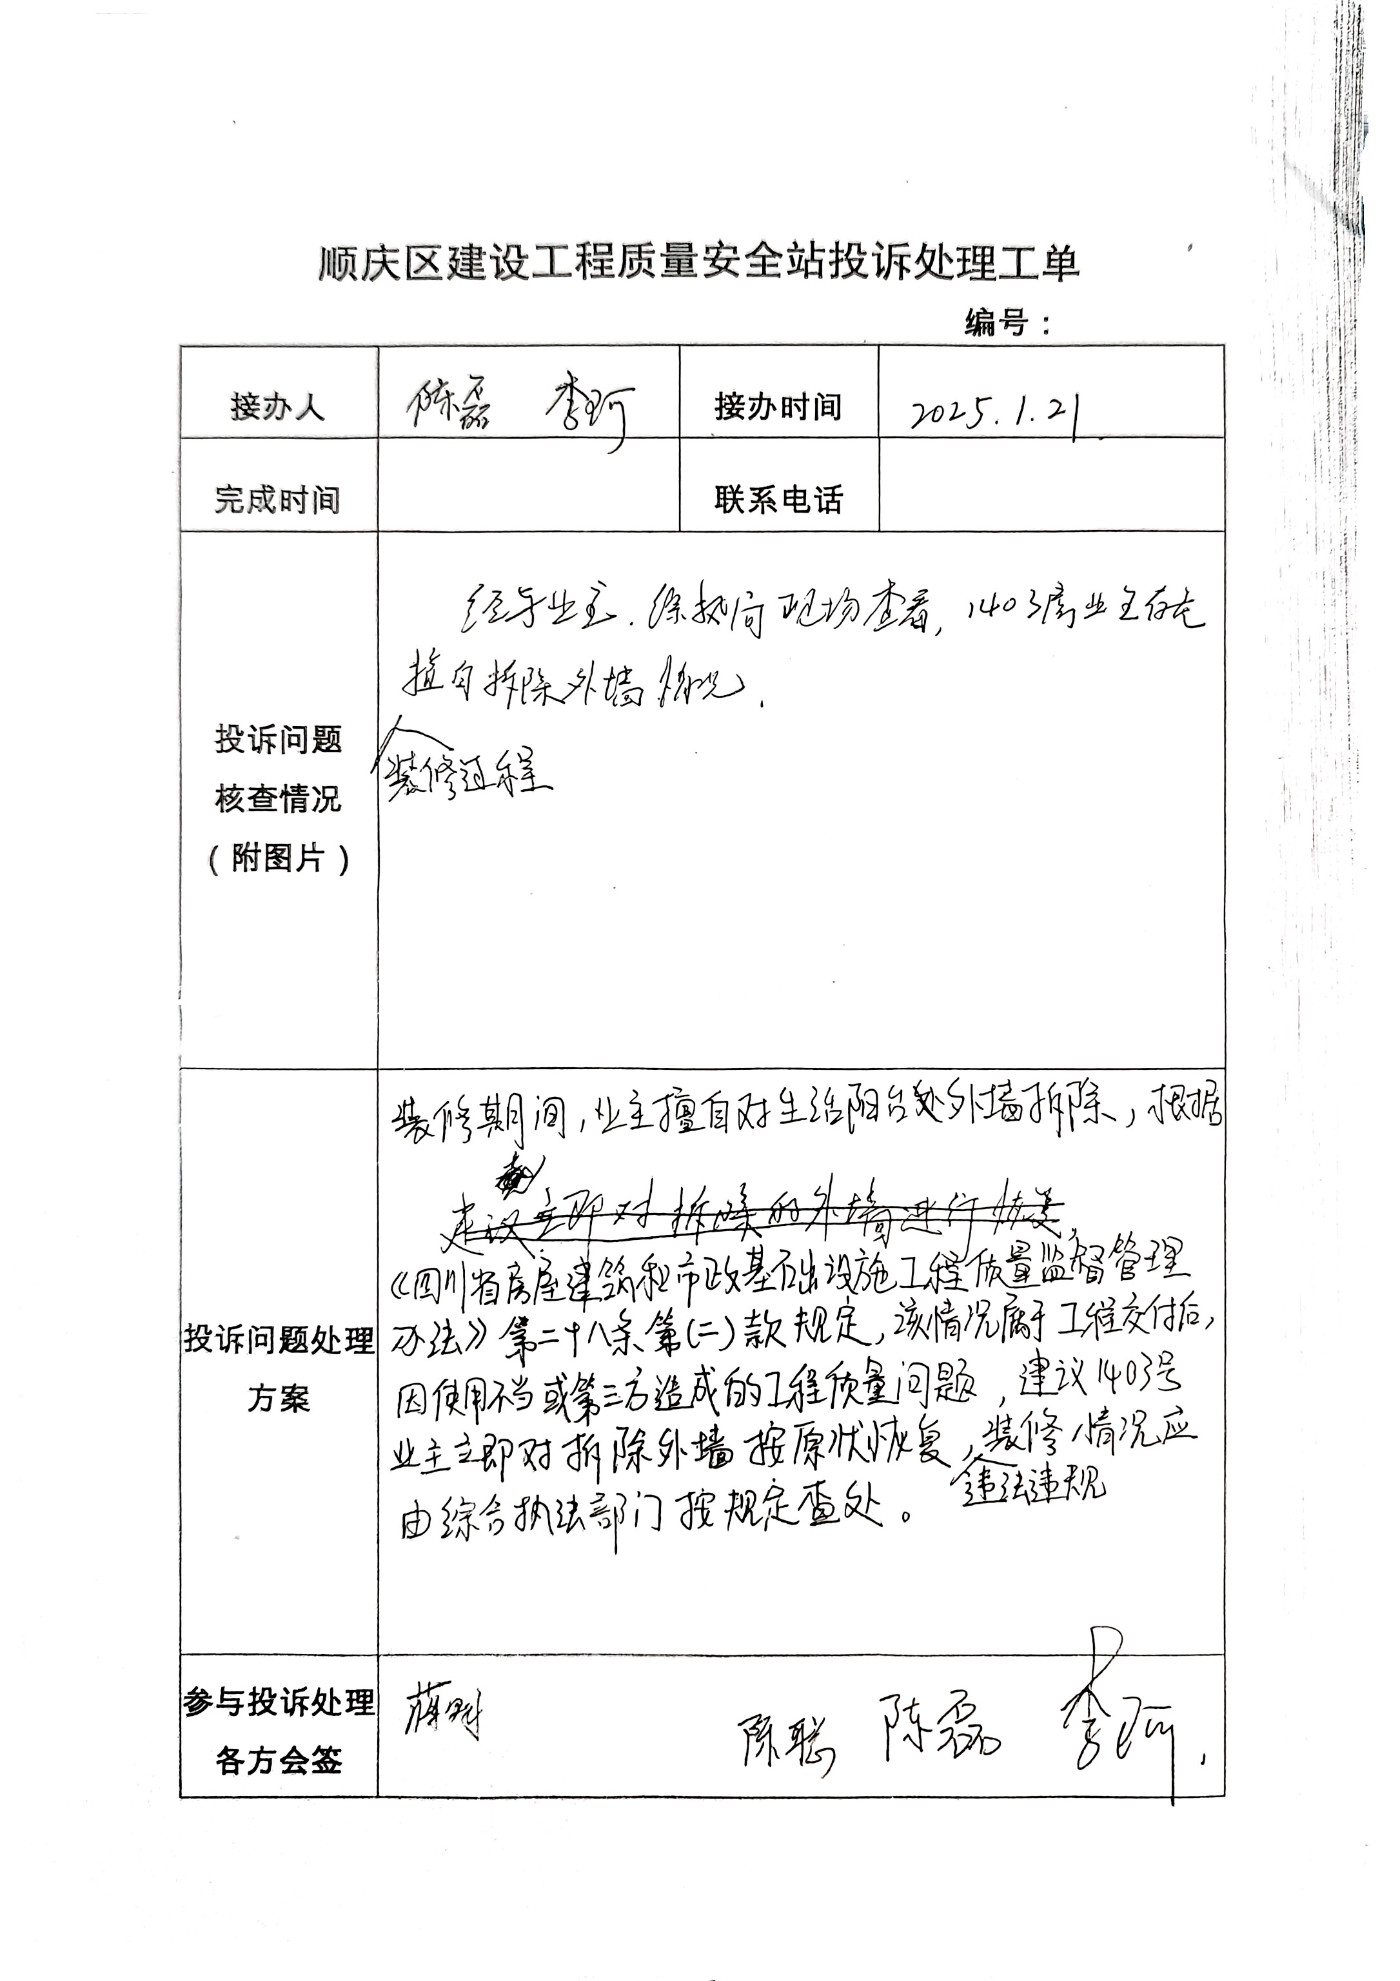 顺庆区建设工程质量安全站投诉处理工单
编号：
接办人 陈磊 李珂 接办时间 2025.1.21
完成时间 联系电话
投诉问题
核查情况
（附图片）
经与业主、综执局现场查看，1403房业主存在
擅自拆除外墙情况。
装修过程
投诉问题处理
方案
装修期间，业主擅自对生活阳台处外墙拆除，根据
建议立即对拆除的外墙进行恢复。
《四川省房屋建筑和市政基础设施工程质量监督管理
办法》第二十八条第(二)款规定，该情况属于工程交付后，
因使用不当或第三方造成的工程质量问题，建议1403号
业主立即对拆除外墙按原状恢复，装修情况应
违法违规
由综合执法部门按规定查处。
参与投诉处理
各方会签
陈聪 陈磊 李珂